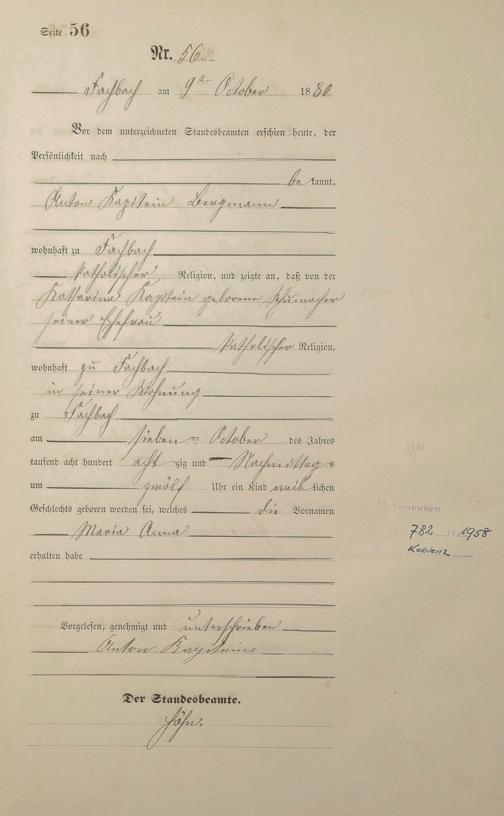 Seite 56
Nr. 56.
Fachbach am 9ten October 1880
Vor dem unterzeichneten Standesbeamten erschien heute, der
Persönlichkeit nach
be kannt,
Anton Kaptein Bergmann
wohnhaft zu Fachbach
katholischer Religion, und zeigte an, daß von der
Katharina Kaptein geborene Schumacher
seiner Ehefrau
katholischer Religion,
wohnhaft zu Fachbach
in seiner Wohnung
zu Fachbach
am sieben ten October des Jahres
tausend acht hundert acht zig und Nachmittags
um zwölf Uhr ein Kind weib lichen
Geschlechts geboren worden sei, welches die Vornamen
Maria Anna
erhalten habe
Vorgelesen, genehmigt und unterschrieben
Anton
Der Standesbeamte.
Höhn.
782 1958
Koblenz